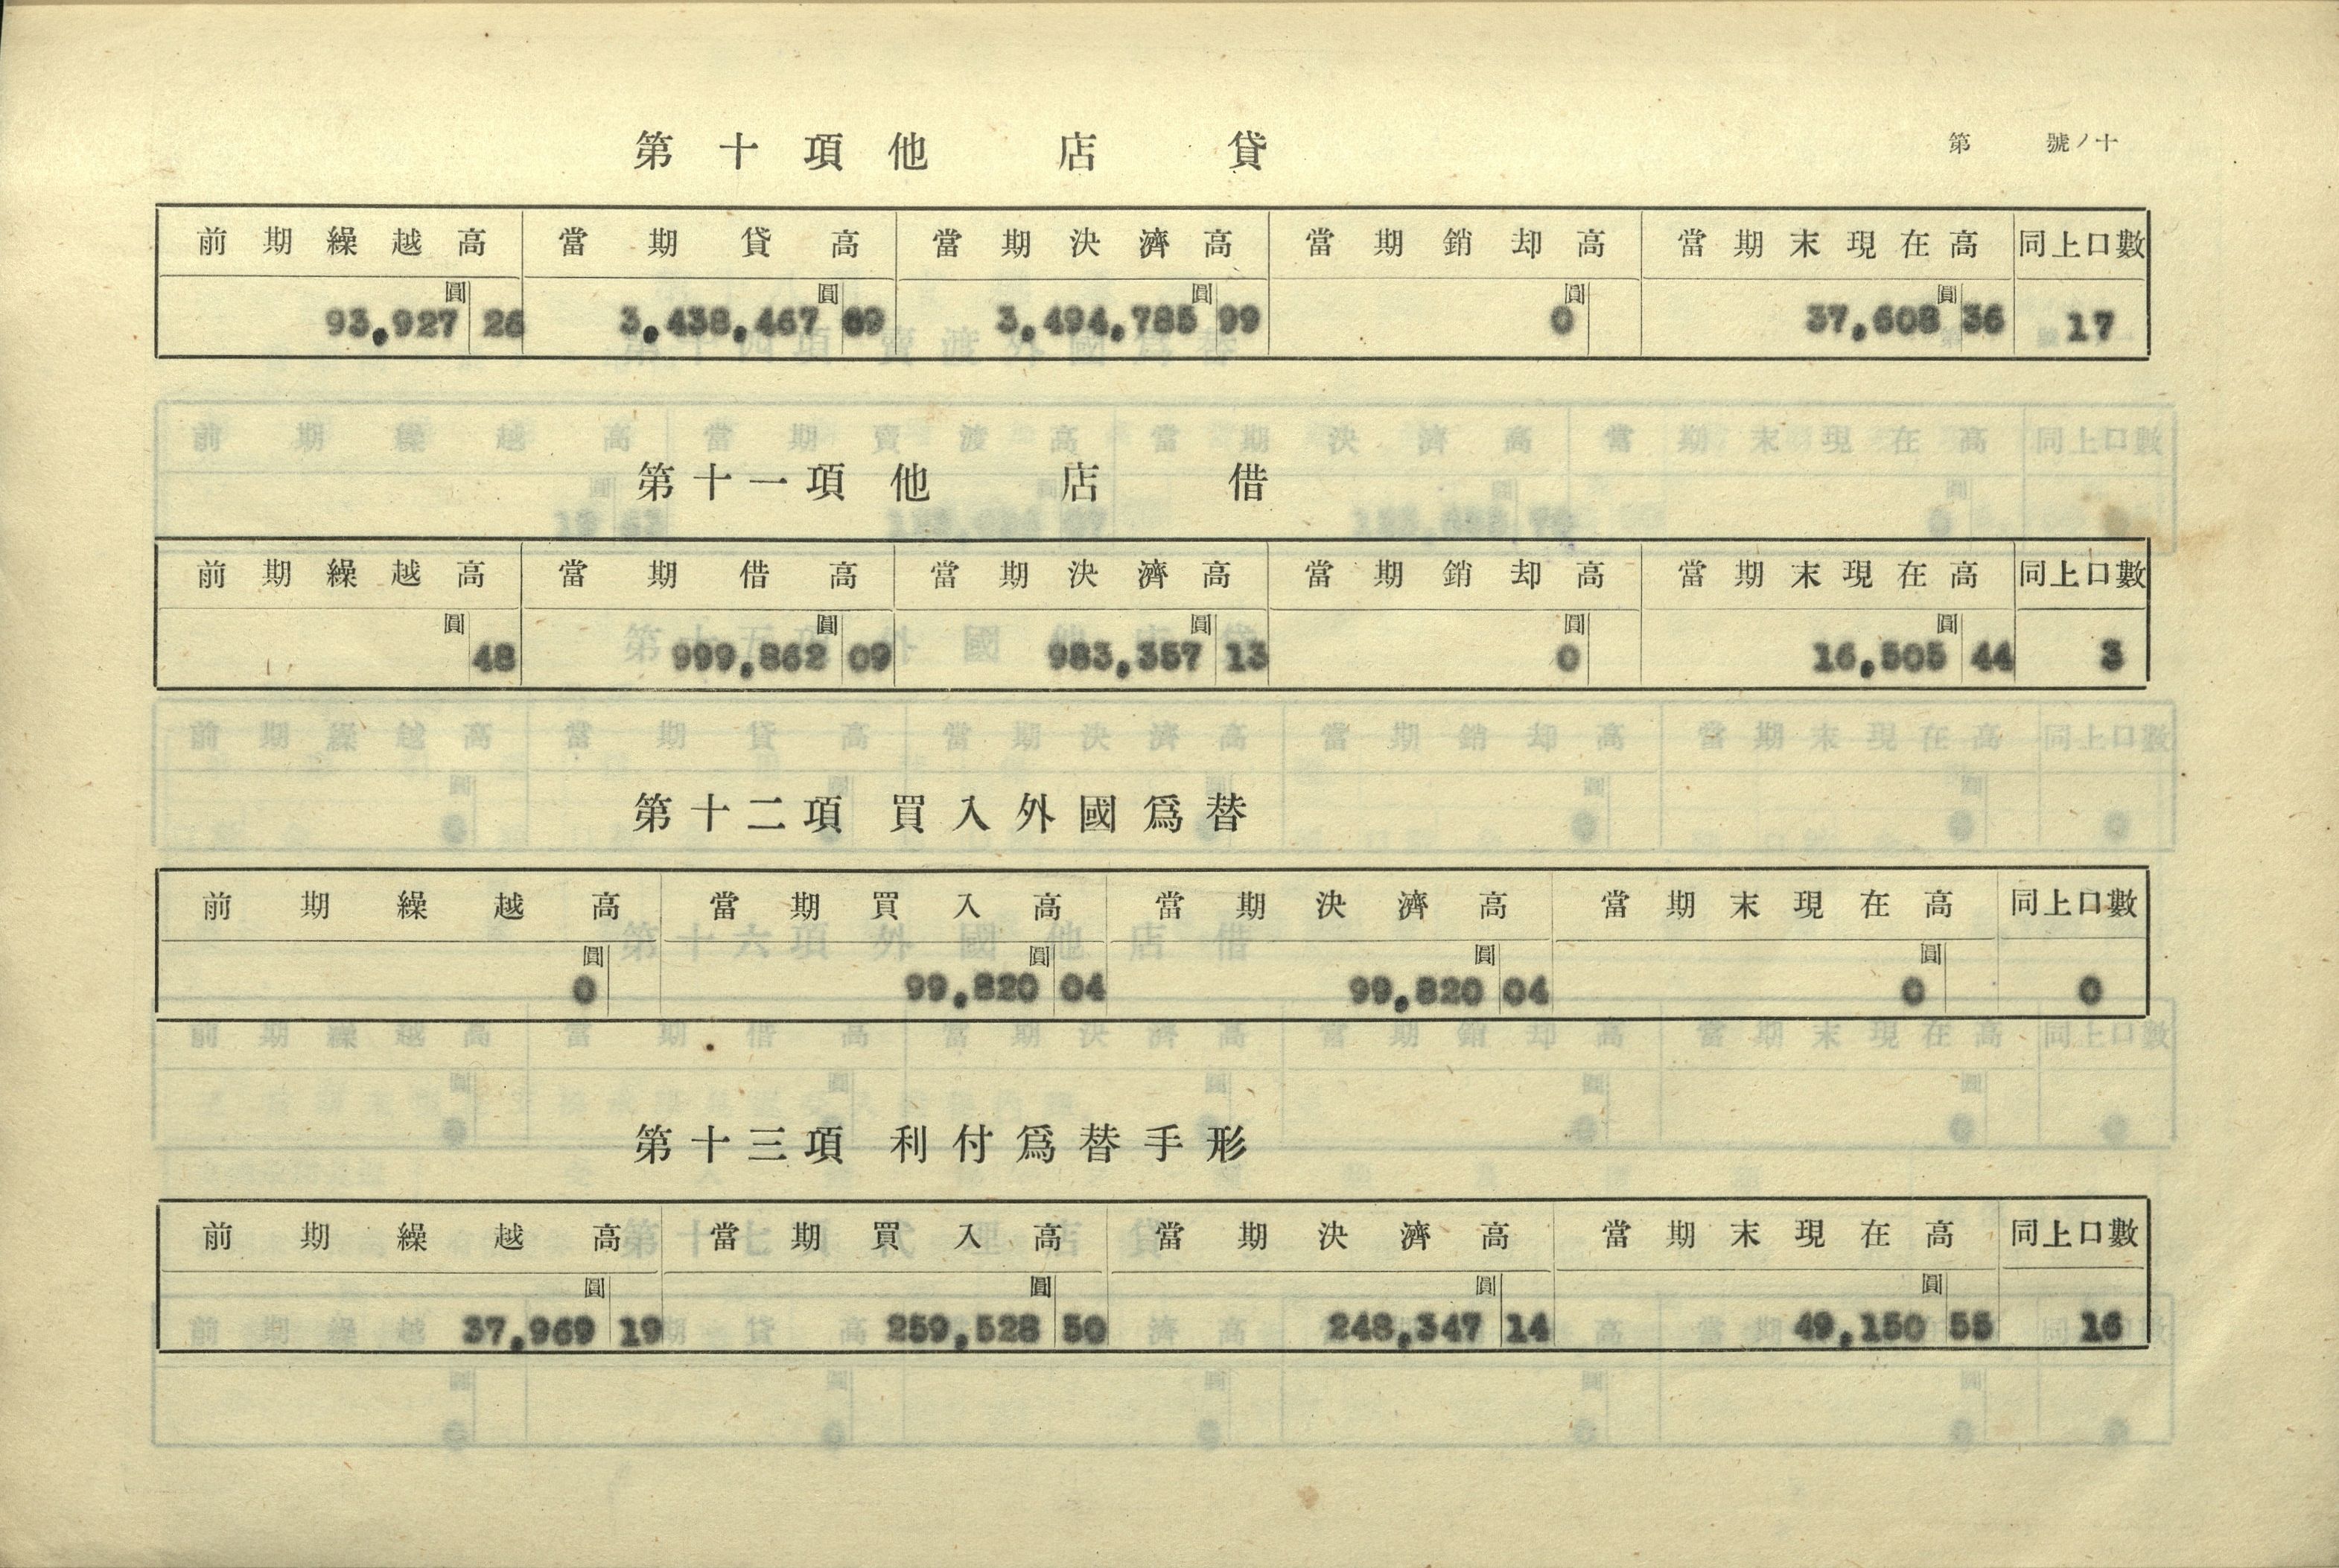 第十項他店貸
第 號ノ十
前期繰越高 當期貸高 當期決濟高 當期銷却高 當期末現在高 同上口數
圓 圓 圓 圓 圓
93,927 26 3,438,467 09 3,494,785 99 0 37,608 36 17
第十一項他店借
前期繰越高 當期借高 當期決濟高 當期銷却高 當期末現在高 同上口數
圓 圓 圓 圓 圓
48 999,862 09 983,357 13 0 16,505 44 3
第十二項 買入外國爲替
前期繰越高 當期買入高 當期決濟高 當期末現在高 同上口數
圓 圓 圓 圓
0 99,820 04 99,820 04 0 0
第十三項 利付爲替手形
前期繰越高 當期買入高 當期決濟高 當期末現在高 同上口數
圓 圓 圓 圓
37,969 19 259,528 50 248,347 14 49,150 55 16